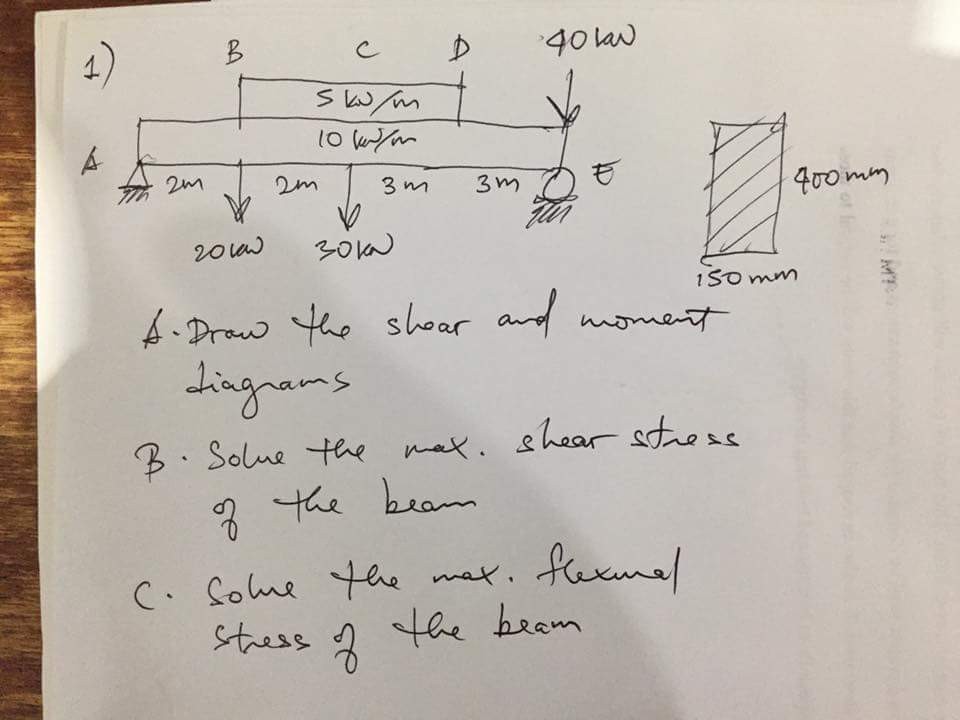 1)
B C D 40 kN
5 kN/m
10 kN/m
A 2m 2m 3m 3m E
20 kN 30 kN
400mm
150mm
A. Draw the shear and moment
diagrams
B. Solve the max. shear stress
of the beam
C. Solve the max. flexural
stress of the beam